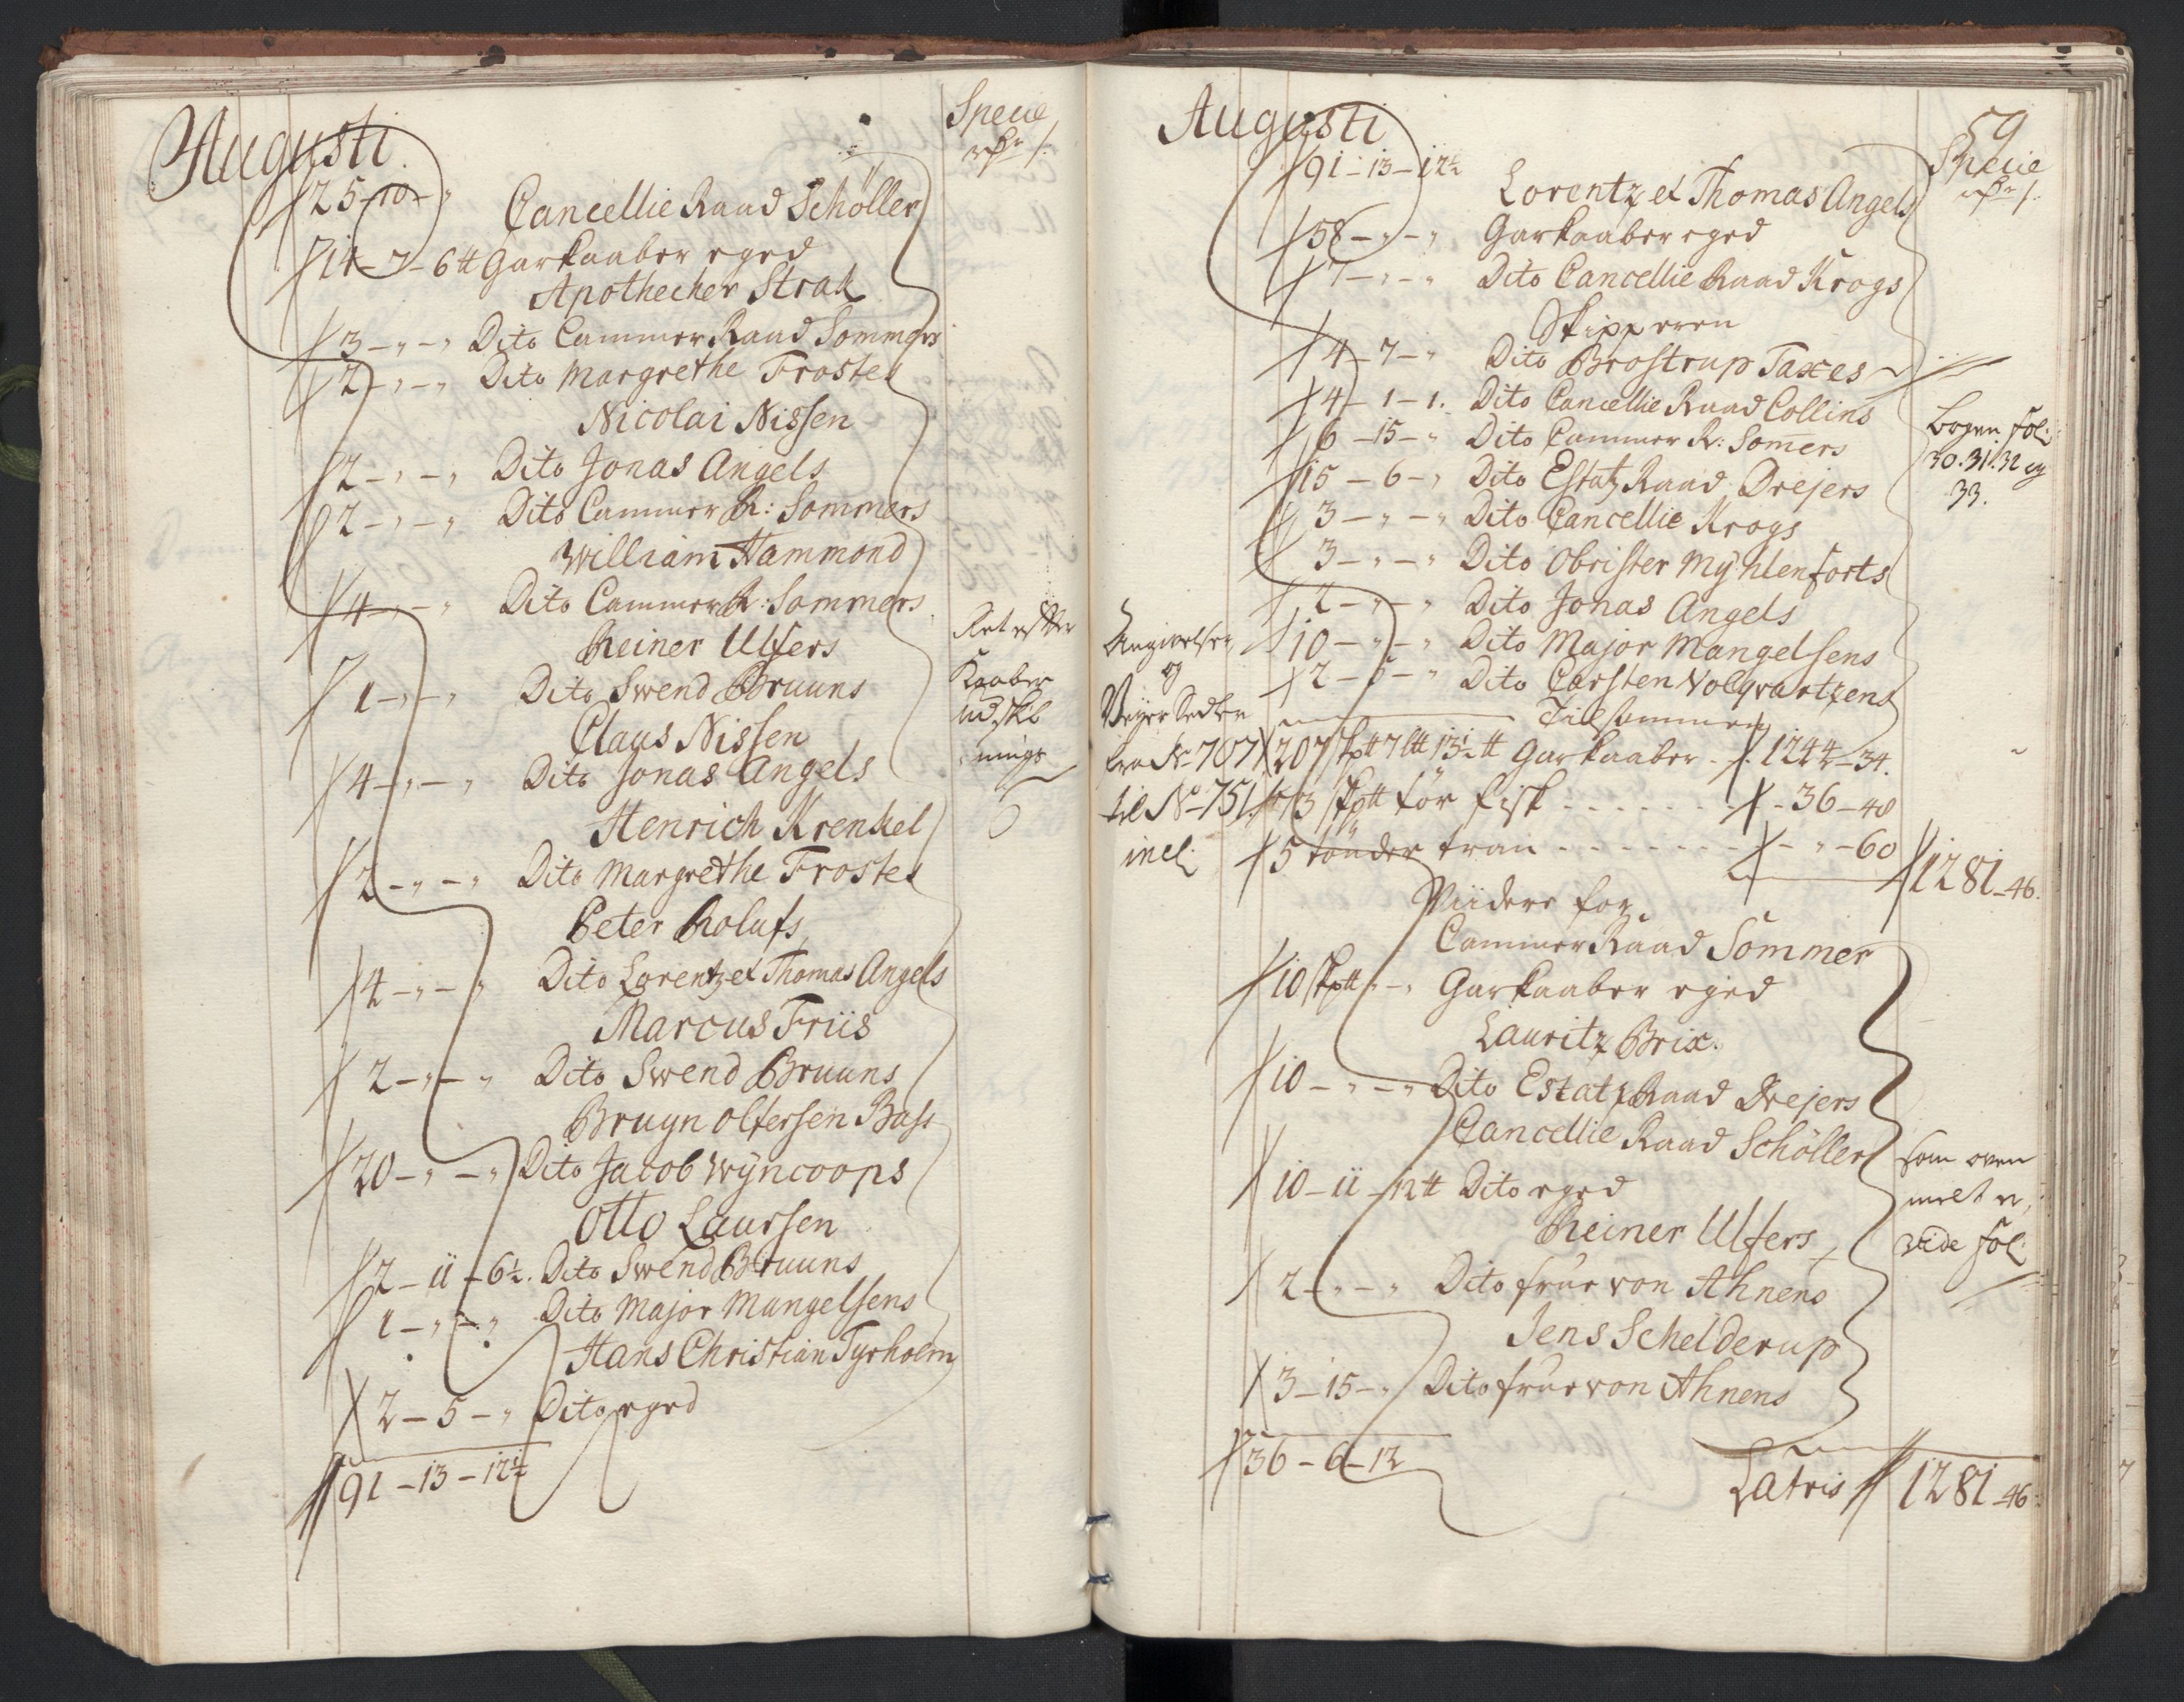 Augusti.
Specie
rdr ſ.
25-10-"
Cancellie Raad Schöller
14-7-6 ℔ Garkaaber eged
Apothecher Strak
3-"-" Dito Cammer Raad Sommers
2-"-" Dito Margrethe Frostes
Nicolai Nissen
2-"-" Dito Jonas Angels
2-"-" Dito Cammer R: Sommers
William Hammond
4-"-" Dito Cammer R: Sommers
Reiner Ulfers
1-"-" Dito Swend Bruuns
Claus Nissen
4-"-" Dito Jonas Angels
Henrich Krenkel
2-"-" Dito Margrethe Frostes
Peter Rolufs
4-"-" Dito Lorentz et Thomas Angels
Marcus Friis
2-"-" Dito Swend Bruuns
Bruyn Olfersen Bass
20-"-" Dito Jacob Wÿncoops
Otto Laursen
2-11-6½. Dito Swend Bruuns
1-"-" Dito Major Mangelsens
Hans Christian Tyrholm
2-5-" Dito eged
91-13-12½
Kaaber
udskib
nings
Augusti
59
Specie
rdr ſ.
91-13-12½
Lorentz et Thomas Angels
58-"-" Garkaaber eged
7-"-" Dito Cancellie Raad Krogs
Skipperen
4-7-" Dito Brostrup Taxes
4-1-1. Dito Cancellie Raad Collins
6-15-" Dito Cammer R: Somers
15-6-" Dito Estatz Raad Drejers
3-"-" Dito Cancellie Krogs
3-"-" Dito Obrister Mÿhlenforts
2-"-" Dito Jonas Angels
10-"-" Dito Major Mangelsens
2-5-" Dito Carsten Volqvartzens
Tilsammen
207 skp℔ 7 l℔ 13½ ℔ Garkaaber - 1244-34.
13 skp℔ tör fisk - - - 36-48
5 tönder tran - - - -"-60
1281-46.
Bogen fol:
30.31.32 og
33.
Angivelser
og
Veyer Sedler
fra No 707
til No 751.
incl:
Viidere for
Cammer Raad Sommer
10 skp℔ "-" Garkaaber eged
Lauritz Brix.
10-"-" Dito Estatz Raad Drejers
Cancellie Raad Schöller
10-11-12 ℔ Dito eged
Reiner Ulfers
2-"-" Dito frue von Ahnens
Jens Schelderup
3-15-" Dito frue von Ahnens
36-6-12
Som oven
melt er,
vide fol:
Latris 1281-46